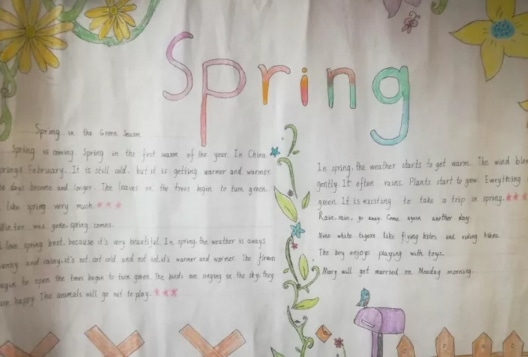 Spring
Spring in the Green Season
Spring is coming. Spring in the first season of the year. In China
springs February. It is still cold. but it is getting warmer and warmer
days become and longer. The leaves on the trees begin to turn green.
like spring very much.
Winter was gone, spring comes.
love spring best. because it's very beautiful. In spring, the weather is always
sunny and it's not cold and not warmer and warmer. The
to open the trees begin to turn green. The birds are singing in the sky. they
happy The animals will go out to play.
In spring, the weather starts to get warm. The wind
gently It often rains. Plants start to grow Everything
green It is exciting to take a trip in spring.
Rain, rain, go away Come again another day.
like flying kites and riding
The boy enjoys playing with toys.
Mary will get married on Monday morning.